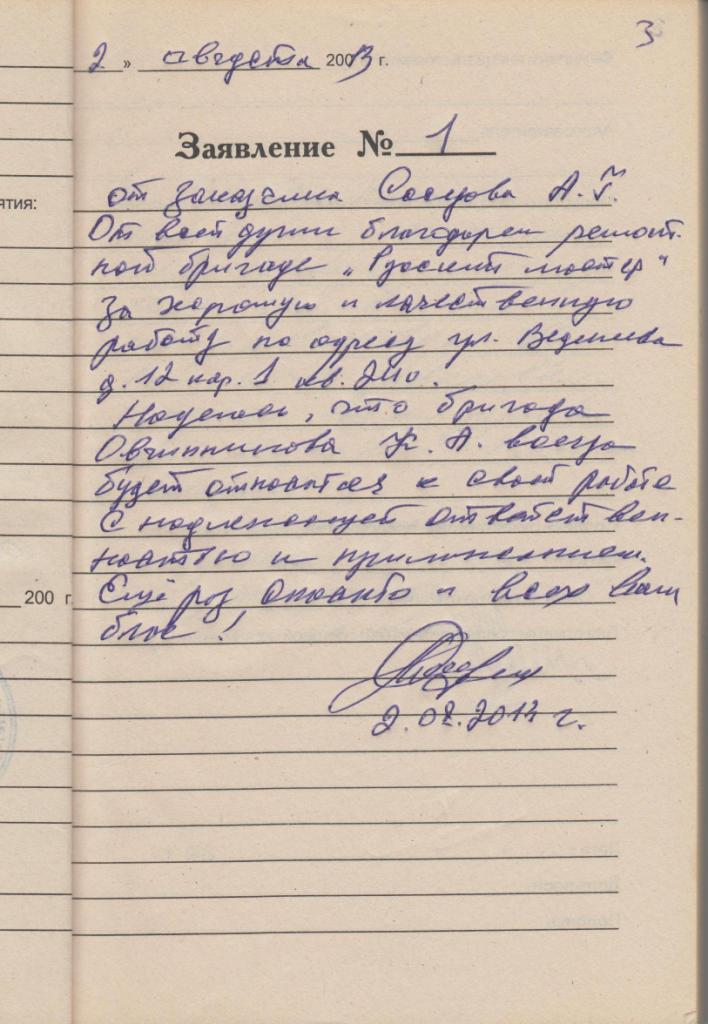 3
2 » августа 2003 г.
Заявление № 1
от заказчика А.Г.
От всей души благодарен ремонт-
ной бригаде „ мастер"
за хорошую и качественную
работу по адресу ул. Веденеева
д. 12 кор. 1 кв. 240.
Надеюсь, что бригада
Овчинникова К. А. всегда
будет относится к своей работе
с надлежащей ответствен-
ностью и прилежанием.
Ещё раз спасибо и всех вам
благ!
2.08.2013 г.
ятия:
200 г.